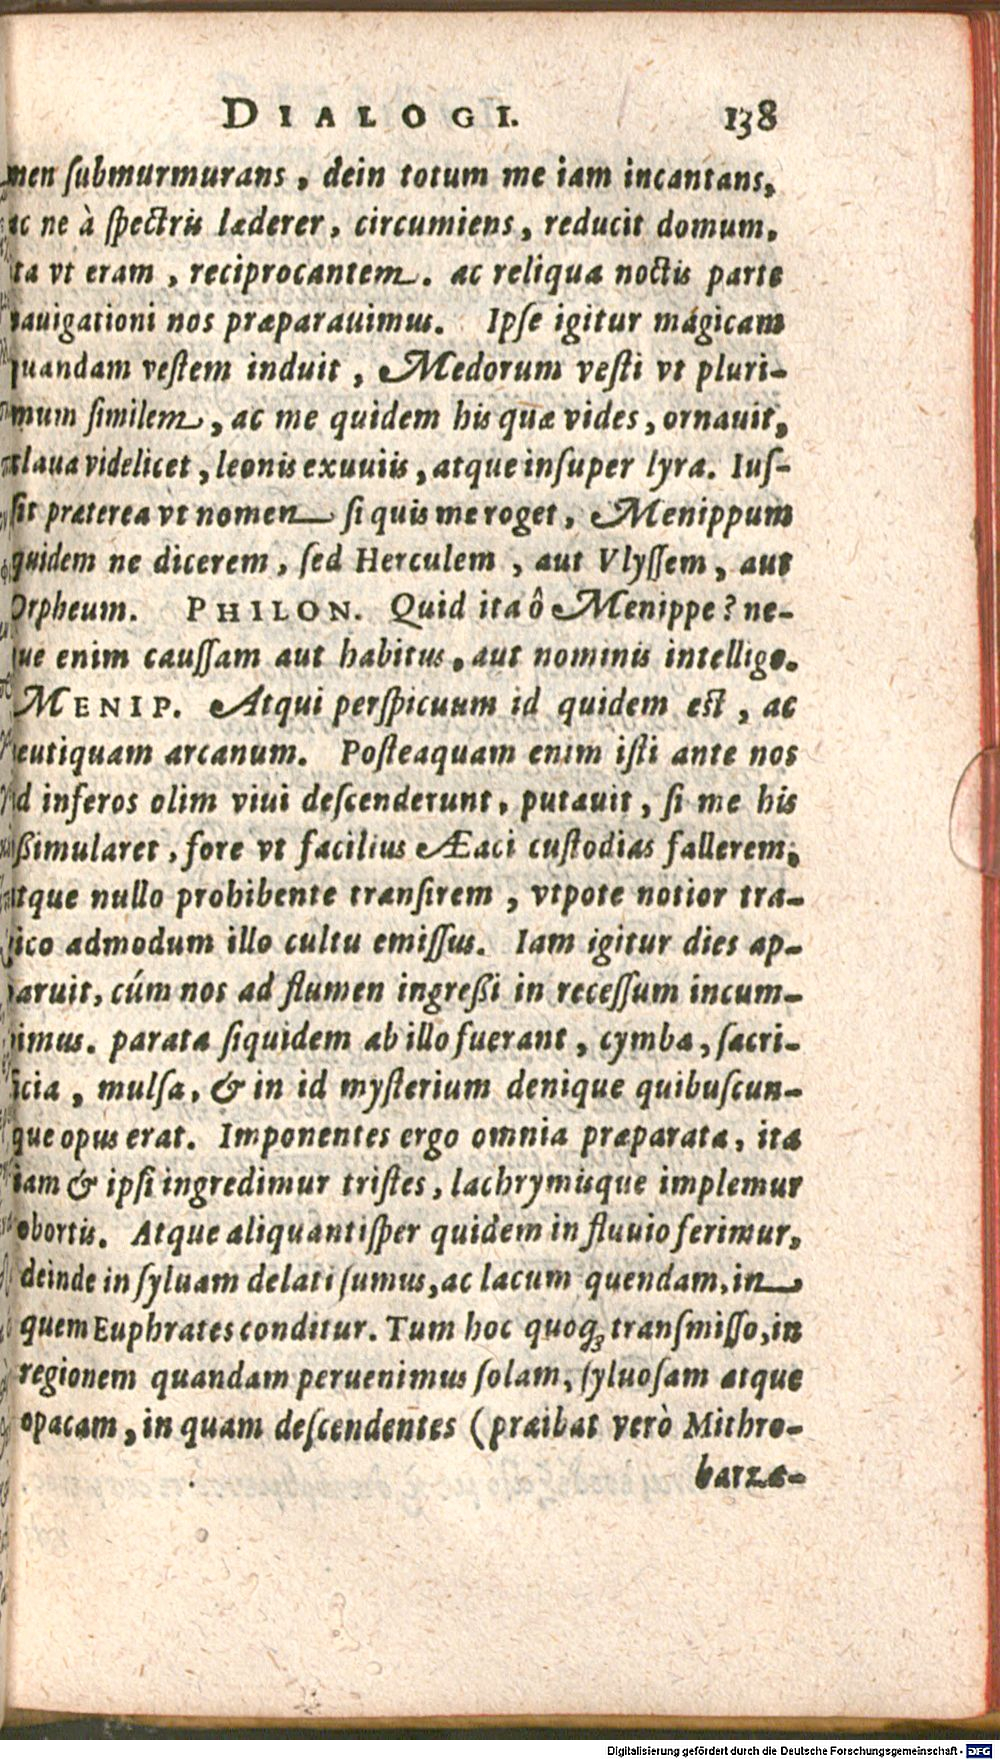 DIALOGI. 138
men ſubmurmurans, dein totum me iam incantans,
ac ne à ſpectris læderer, circumiens, reducit domum,
ita vt eram, reciprocantem. ac reliqua noctis parte
nauigationi nos præparauimus. Ipſe igitur mágicam
quandam veſtem induit, Medorum veſti vt pluri-
mum ſimilem, ac me quidem his quæ vides, ornauit,
claua videlicet, leonis exuuiis, atque inſuper lyra. Iuſ-
ſit præterea vt nomen ſi quis me roget, Menippum
quidem ne dicerem, ſed Herculem, aut Vlyſſem, aut
Orpheum. PHILON. Quid ita ô Menippe? ne-
que enim cauſſam aut habitus, aut nominis intelligo.
MENIP. Atqui perſpicuum id quidem eſt, ac
neutiquam arcanum. Poſteaquam enim iſti ante nos
ad inferos olim viui deſcenderunt, putauit, ſi me his
aßimularet, fore vt facilius Æaci cuſtodias fallerem,
atque nullo prohibente tranſirem, vtpote notior tra-
gico admodum illo cultu emiſſus. Iam igitur dies ap-
paruit, cúm nos ad flumen ingreßi in receſſum incum-
bimus. parata ſiquidem ab illo fuerant, cymba, ſacri-
ficia, mulſa, & in id myſterium denique quibuſcun-
que opus erat. Imponentes ergo omnia præparata, ita
iam & ipſi ingredimur triſtes, lachrymisque implemur
obortis. Atque aliquantiſper quidem in fluuio ferimur,
deinde in ſyluam delati ſumus, ac lacum quendam, in
quem Euphrates conditur. Tum hoc quoq; tranſmiſſo, in
regionem quandam peruenimus ſolam, ſyluoſam atque
opacam, in quam deſcendentes (præibat verò Mithro-
barza-
Digitalisierung gefördert durch die Deutsche Forschungsgemeinschaft - DFG